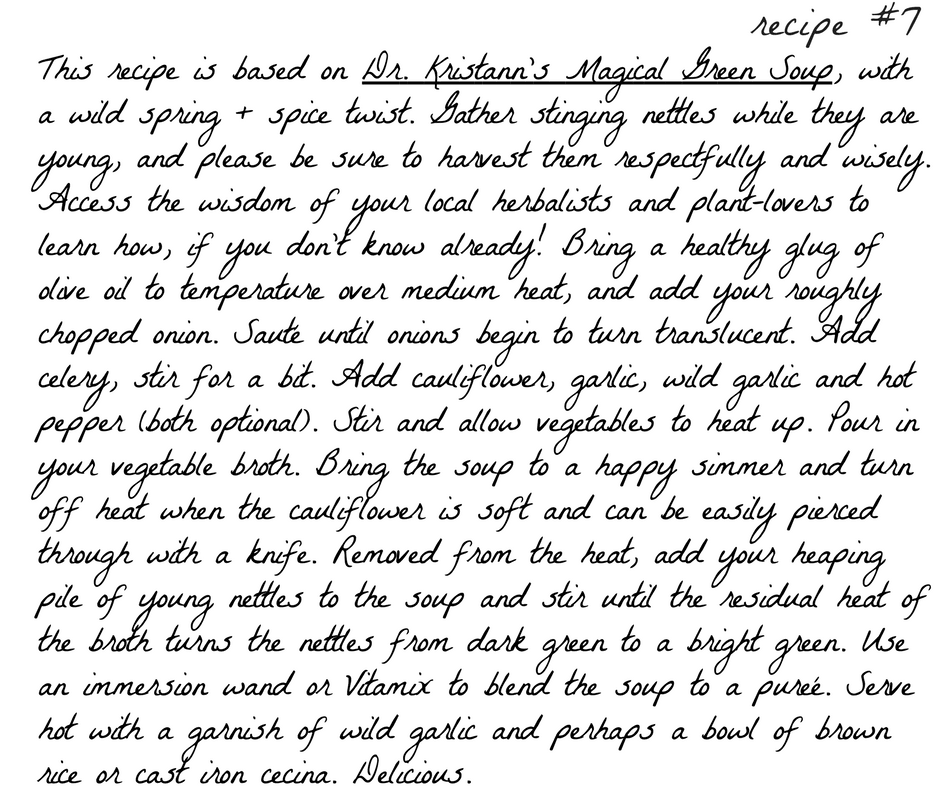 recipe #7
This recipe is based on Dr. Kristann's Magical Green Soup, with
a wild spring + spice twist. Gather stinging nettles while they are
young, and please be sure to harvest them respectfully and wisely.
Access the wisdom of your local herbalists and plant-lovers to
learn how, if you don't know already! Bring a healthy glug of
olive oil to temperature over medium heat, and add your roughly
chopped onion. Saute until onions begin to turn translucent. Add
celery, stir for a bit. Add cauliflower, garlic, wild garlic and hot
pepper (both optional). Stir and allow vegetables to heat up. Pour in
your vegetable broth. Bring the soup to a happy simmer and turn
off heat when the cauliflower is soft and can be easily pierced
through with a knife. Removed from the heat, add your heaping
pile of young nettles to the soup and stir until the residual heat of
the broth turns the nettles from dark green to a bright green. Use
an immersion wand or Vitamix to blend the soup to a pureé. Serve
hot with a garnish of wild garlic and perhaps a bowl of brown
rice or cast iron cecina. Delicious.